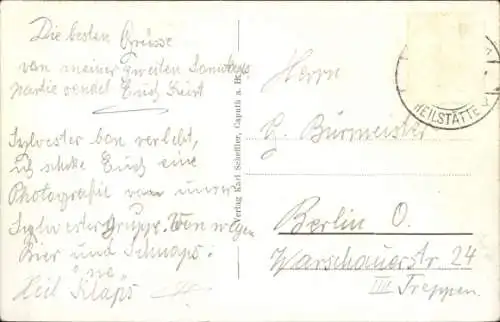 Die besten Grüsse
von meiner zweiten Sonntags
partie sendet Euch Kurt
Sylvester bon verlebt,
ich schike Euch eine
Photografie von unsrer
Sylvestergruppe. Von wegen
Bier und Schnaps.
"na"
Heil Klaps
Verlag Karl Scheffler, Caputh a. H.
HEILSTÄTTE
Herrn
G. Bürmeister
Berlin O.
Warschauerstr 24
III Treppen.